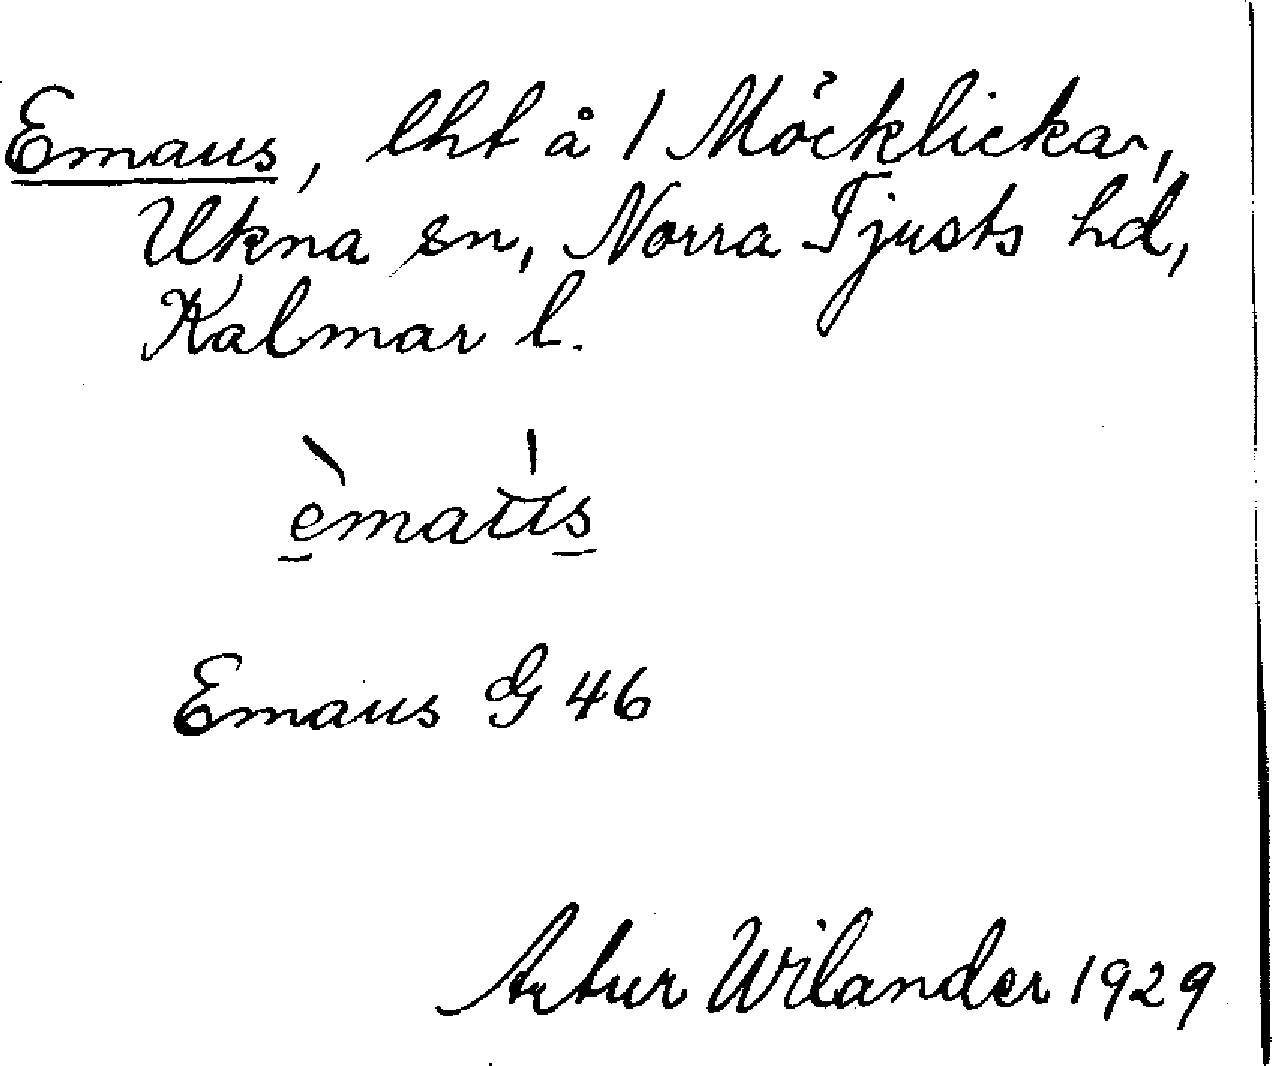 Emaus, lht å 1 Möcklickar,
Ukna sn, Norra Tjusts hd,
Kalmar l.
Emaus G 46
Artur Wilander 1929